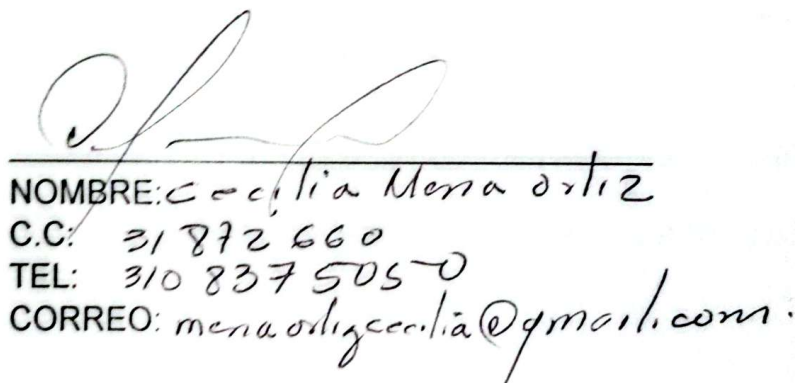 NOMBRE: Cecilia Mena Ortiz
C.C: 31 872 660
TEL: 310 837 5050
CORREO: menaortizcecilia@gmail.com.